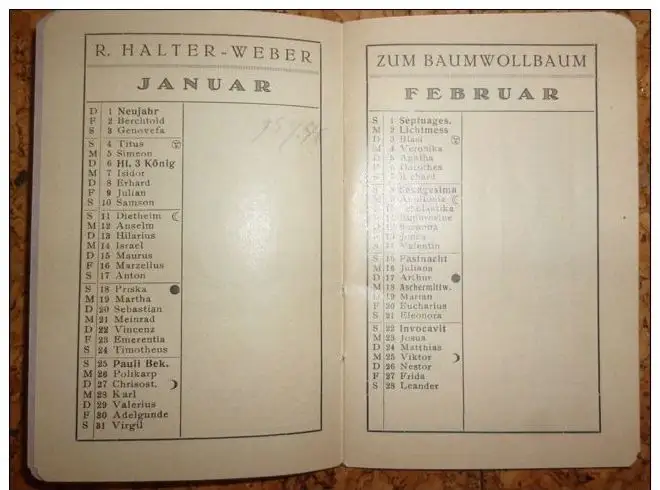 R. HALTER-WEBER
JANUAR
D 1 Neujahr
F 2 Berchtold
S 3 Genovefa
S 4 Titus
M 5 Simeon
D 6 Hl. 3 König
M 7 Isidor
D 8 Erhard
F 9 Julian
S 10 Samson
S 11 Diethelm
M 12 Anselm
D 13 Hilarius
M 14 Israel
D 15 Maurus
F 16 Marzellus
S 17 Anton
S 18 Priska
M 19 Martha
D 20 Sebastian
M 21 Meinrad
D 22 Vincenz
F 23 Emerentia
S 24 Timotheus
S 25 Pauli Bek.
M 26 Polikarp
D 27 Chrisost.
M 28 Karl
D 29 Valerius
F 30 Adelgunde
S 31 Virgil
ZUM BAUMWOLLBAUM
FEBRUAR
S 1 Septuages.
M 2 Lichtmess
D 3 Blasi
M 4 Veronika
D 5 Agatha
F 6 Dorothea
S 7 Richard
S 8 Sexagesima
M 9 Apollonia
D 10 Scholastika
M 11
D 12
F 13 Jonas
S 14 Valentin
S 15 Fastnacht
M 16 Juliana
D 17
M 18 Aschermittw.
D 19
F 20 Eucharius
S 21 Eleonora
S 22 Invocavit
M 23 Josua
D 24 Matthias
M 25 Viktor
D 26 Nestor
F 27 Frida
S 28 Leander